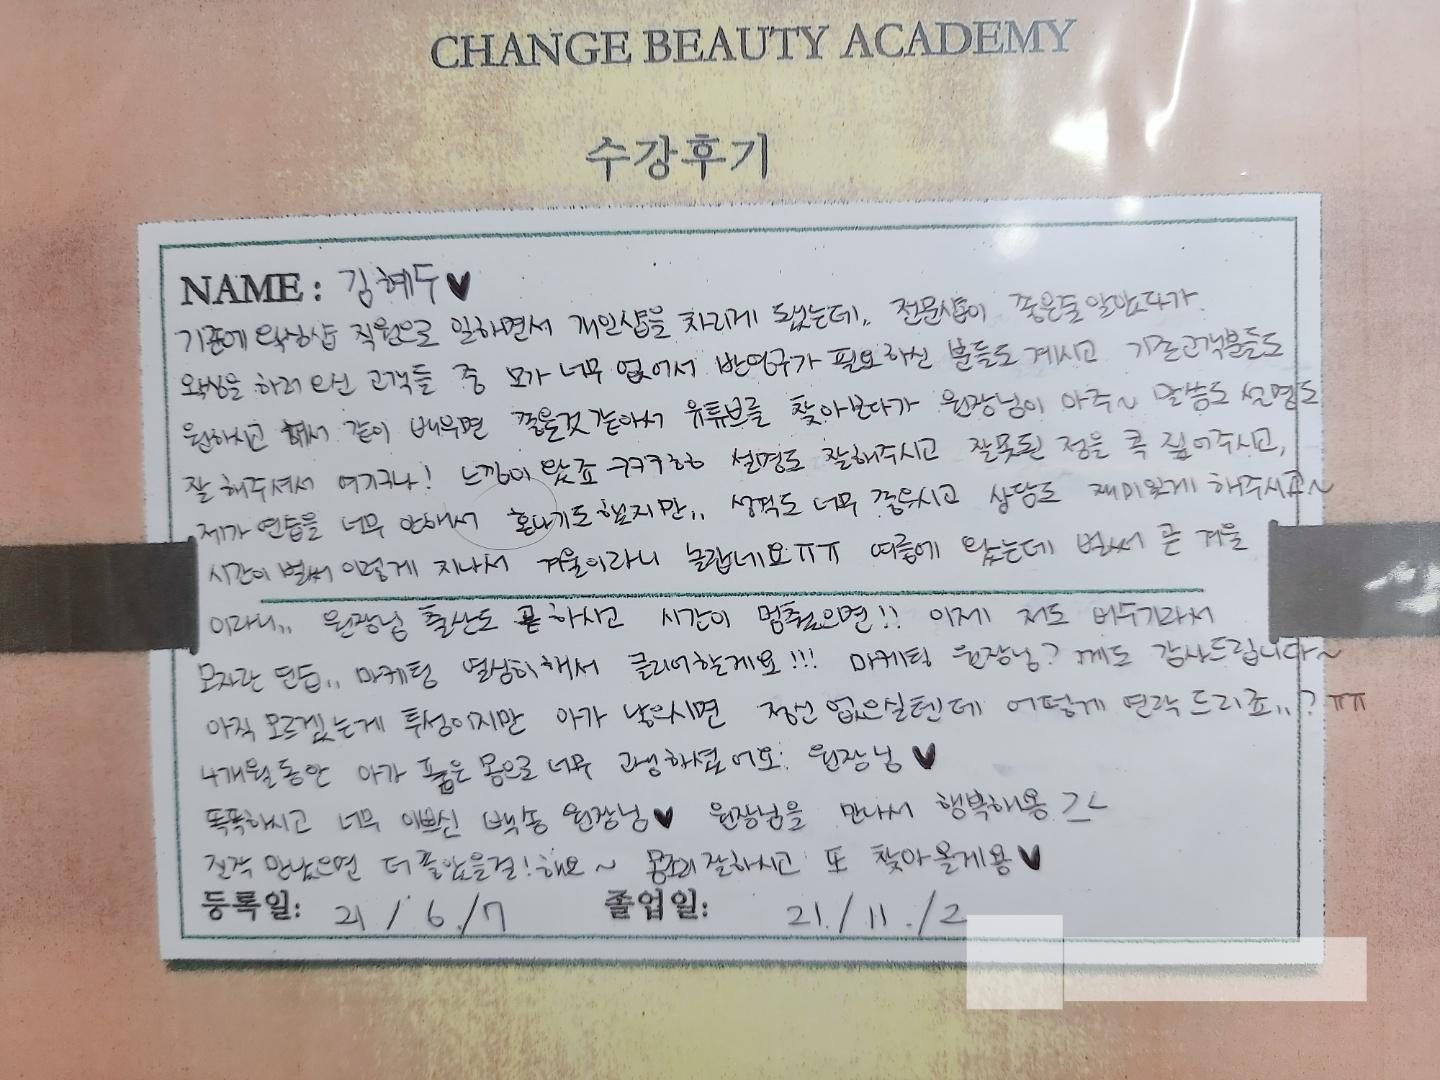 CHANGE BEAUTY ACADEMY
수강후기
NAME : 김혜두♥
기존에 왁싱샵 직원으로 일하면서 개인샵을 차리게 됐는데, 전문샵이 좋은줄 알았다가
왁싱을 하러 오신 고객들 중 모가 너무 없어서 반영구가 필요하신 분들도 계시고 기존고객분들도
원하시고 해서 같이 배우면 좋을것같아서 유튜브를 찾아보다가 원장님이 아주~ 말씀도 설명도
잘해주셔서 여기구나! 느낌이 왔죠 ㅋㅋㅋㅎㅎ 설명도 잘해주시고 잘못된 점을 콕 짚어주시고,
제가 연습을 너무 안해서 혼나기도 했지만,, 성격도 너무 좋으시고 상담도 재미있게 해주시고~
시간이 벌써 이렇게 지나서 겨울이라니 놀랍네요ㅠㅠ 여름에 왔는데 벌써 곧 겨울
이라니,, 원장님 출산도 곧 하시고 시간이 멈췄으면!! 이제 저도 바우기라서
모자란 연습,, 마케팅 열심히해서 클리어할게요!!! 마케팅 원장님? 께도 감사드립니다~
아직 모르겠는게 투성이지만 아가 낳으시면 정신 없으실텐데 어떻게 연락드리죠,,? ㅠㅠ
4개월동안 아가 품은 몸으로 너무 고생하셨어요. 원장님 ♥
똑똑하시고 너무 이쁘신 백송 원장님♥ 원장님을 만나서 행복해용 ㄱㄴ
진작 만났으면 더 좋았을걸!해요~ 몸조리 잘하시고 또 찾아올게용♥
등록일: 21 / 6 / 7 졸업일: 21. / 11. / 2